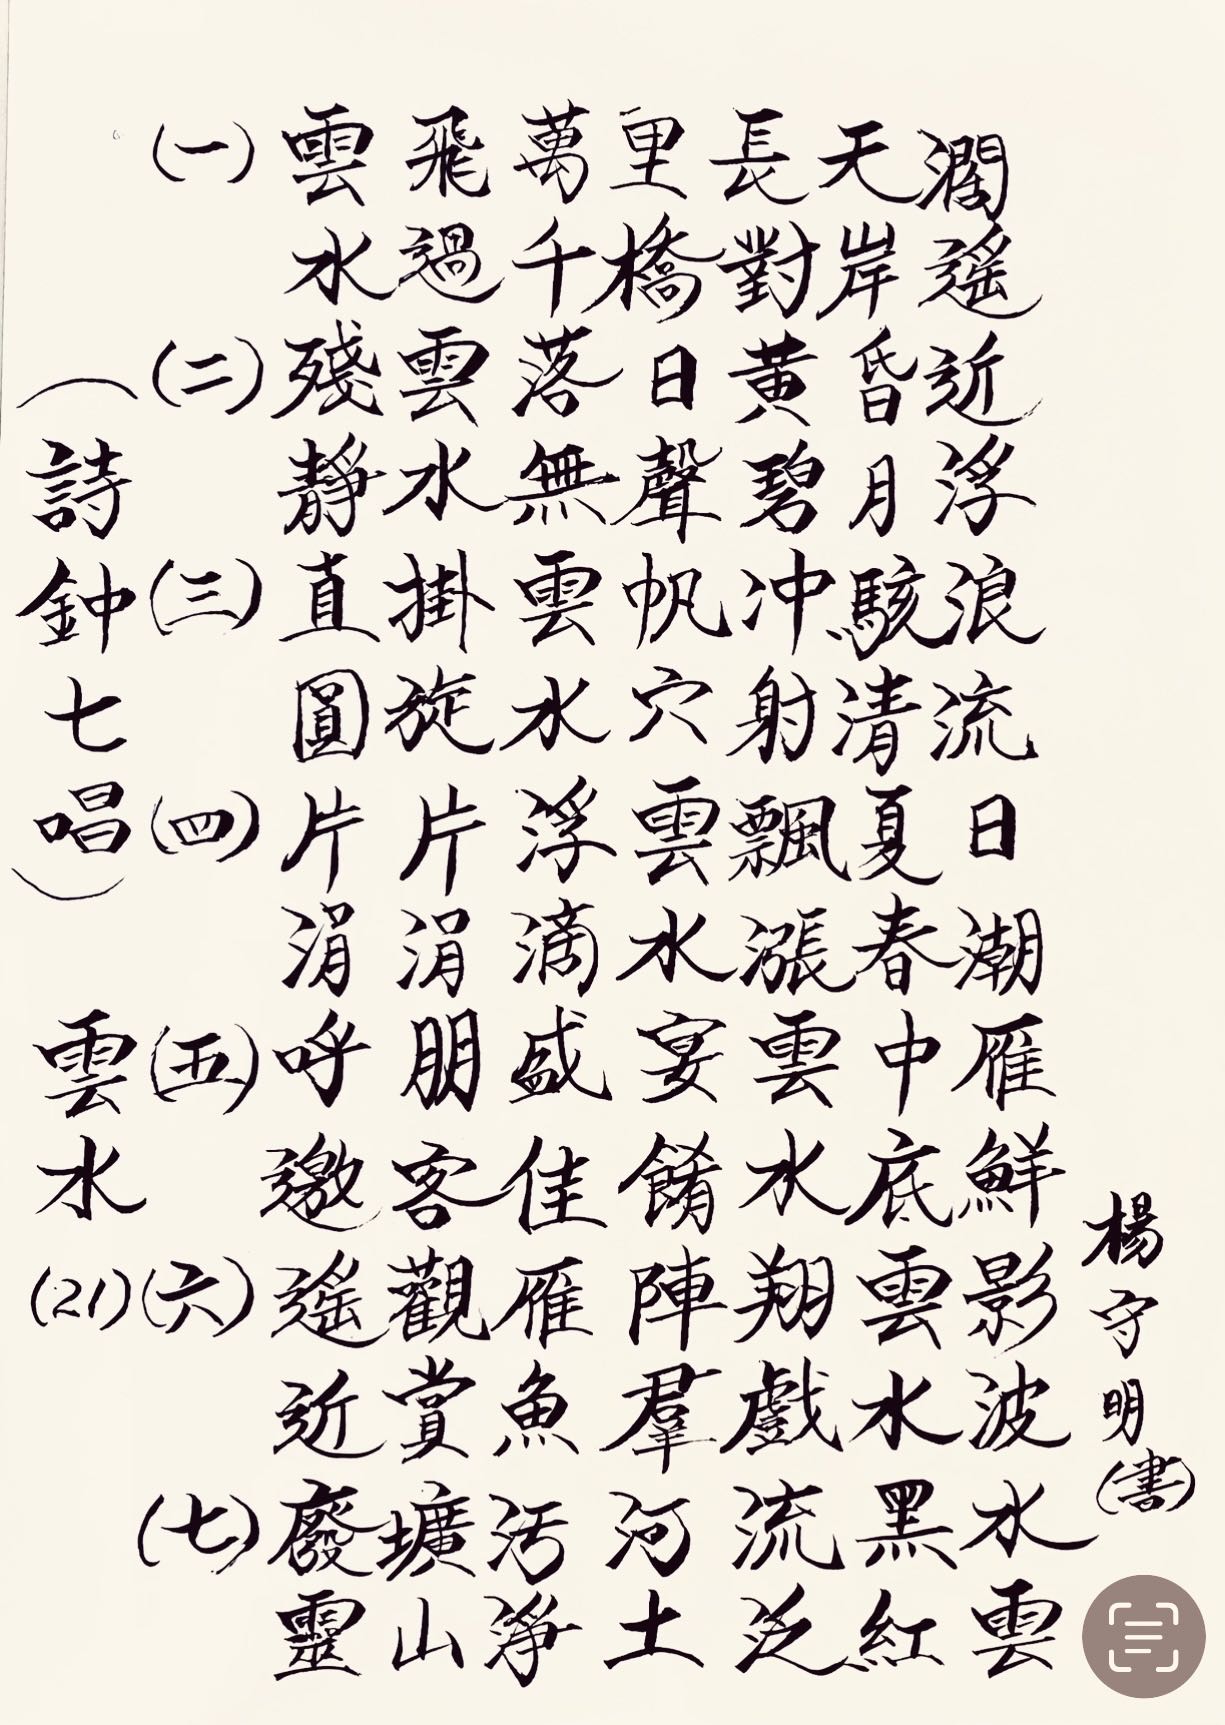 （詩鐘七唱） 雲水 (21)
(一) 雲飛萬里長天濶
水過千橋對岸遙
(二) 殘雲落日黃昏近
靜水無聲碧月浮
(三) 直掛雲帆冲駭浪
圓旋水穴射清流
(四) 片片浮雲飄夏日
涓涓滴水漲春潮
(五) 呼朋盛宴雲中雁
邀客佳餚水底鮮
(六) 遙觀雁陣翔雲影
近賞魚羣戲水波
(七) 廢壙污河流黑水
靈山淨土泛紅雲
楊守明(書)